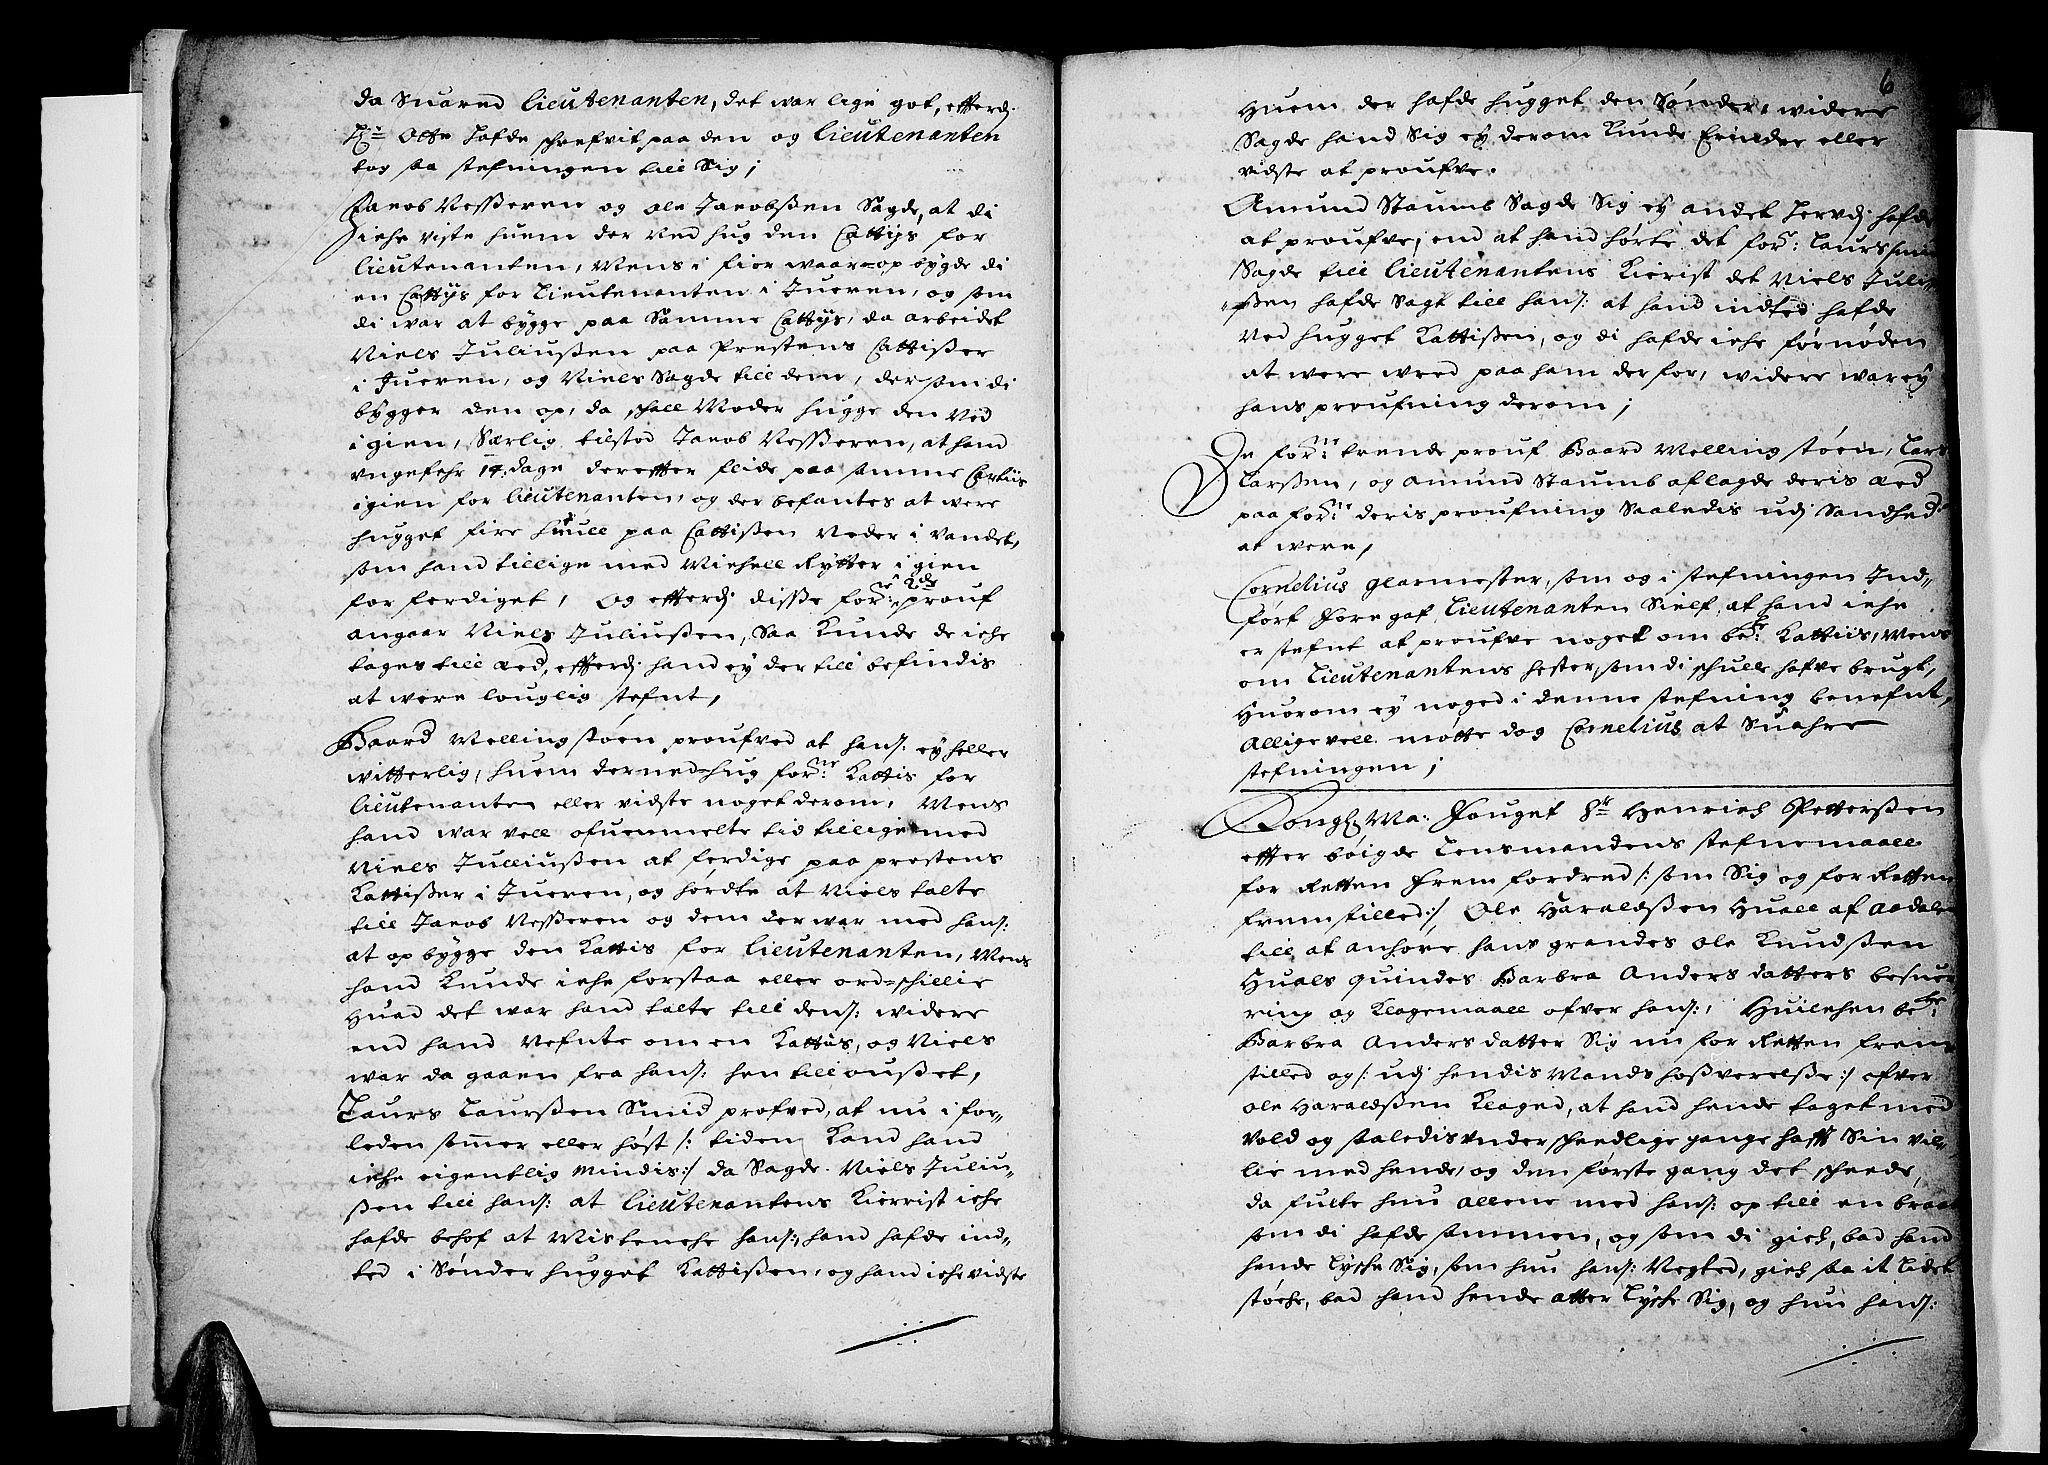 da Suared Lieutenanten, det war lige got, efterdj
Hr: Otte hafde schrefvit paa den og Lieutenanten
tog saa stefningen till Sig;
Jacob Vesseren og Ole Jacobßen Sagde, at di
iche viste huem der Ned hug den Cattijs for
Lieutenanten, Mens i fior waar op bygde di
en Cattijs for Lieutenanten i Jueren, og som
di war at bygge paa Samme Cattijs, da arbeidet
Niels Juliußen paa Prestens Cattißer
i Jueren, og Niels Sagde till dem, dersom di
bygger den op, da schall Moder hugge den Ned
igien, Særlig tilstod Jacob Vesseren, at hand
ungefehr 14. dage derefter flide paa samme Cattiis
igien for Lieutenanten, og der befantes at were
hugget fire huull paa Cattißen Neder i Vandet,
som hand tillige med Michell Rytter igien
for ferdiget, Og efterdj disse forne: 2de prouf
angaar Niels Juliußen, Saa Kunde de iche
tages till æd, efterdj hand ey der till befindis
at were louglig stefnt,
Baard Mellingstøen proufved at hans: ey heller
witterlig, huem der ned-hug forne: Kattis for
Lieutenanten eller vidste noget derom, Mens
hand war vell ofuenmelte tid tillige med
Niels Julliußen at ferdige paa prestens
Kattißer i Jueren, og hørdte at Niels talte
till Jacob Vesseren og dem der war med hans:
at op bygge den Kattis for Lieutenanten, Mens
hand Kunde iche forstaa eller ord-schillie
Huad det war hand talte till dens: widere
end hand Nefnte om en Kattijs, og Niels
war da gaaen fra hans: hen till oußet,
Laurs Laurßen Smid profved, at nu i for-
leden sommer eller høst /: tiden Kand hand
iche eigentlig Mindis :/ da Sagde Niels Juliu-
ßen till hans: at Lieutenantens Kierrist iche
hafde behof at Mistenche hans:, hand hafde ind-
ted i Sønder hugget Kattißen, og hand iche vidste
6
Huem der hafde hugget den Sønder, widere
Sagde hand Sig ey derom Kunde Erindre eller
vidste at proufve.
Amund Staumb Sagde Sig ey andet hervdj hafde
at proufve, end at hand hørte det forne: Laurs smid
Sagde till Lieutenantens Kierist det Niels Juliu-
ßen hafde Sagt till hans: at hand indted hafde
Ned hugget Kattißen, og di hafde iche fornøden
at were wred paa ham der for, widere war ey
hans proufning derom;
De forne: trende prouf Baard Mellingstøen, Lars
Larßen, og Amund Staumb aflagde deris æd
paa forne: deris proufning Saaledis udj Sandhed
at were,
Cornelius glarmester, som og i stefningen Ind-
ført foregaf Lieutenanten Sielf, at hand iche
er stefnt at proufve noget om bete: Kattiis, Mens
om Lieutenantens hester, som di schulle hafve brugt,
Huorom ey noged i denne stefning benefnt,
Alligevell møtte dog Cornelius at Suahre
stefningen;
Kongl Ma: Fouget Sr Henrich Petterßen
efter bøigde Lensmandens stefnemaall
for Retten frem fordred /: som Sig og for Retten
fremstilled :/ Ole Haraldßen Huall af Aadalen
till at anhøre hans grandes Ole Knudßen
Huals quindes Barbra Anders datters besuer-
ring og Klagemaall ofver hans:, Huilchen bete:
Barbra Anders datter Sig nu for Retten frem
stilled og /: udj hendis Mands hoßverelße :/ ofver
Ole Haraldßen Klaged, at hand hende taget med
vold og saaledis underschedlige gange hafft Sin vil-
lie med hende, og den første gang det scheede,
da fulte hun allene med hans: op till en braat
som di hafde sammen, og som di gick, bad hand
hende lyste Sig, som hun hans: Negted, gick saa it lidet
støche, bad hand hende atter lyste Sig, og hun hans: